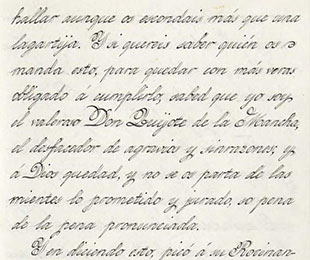 hallar aunque os escondais más que una
lagartija. Y si quereis saber quién os
manda esto, para quedar con más veras
obligado á cumplirlo, sabed que yo soy
el valeroso Don Quijote de la Mancha,
el desfacedor de agravios y sinrazones; y
á Dios quedad, y no se os parta de las
mientes lo prometido y jurado, so pena
de la pena pronunciada.
Y en diciendo esto, picó á su Rocinan-